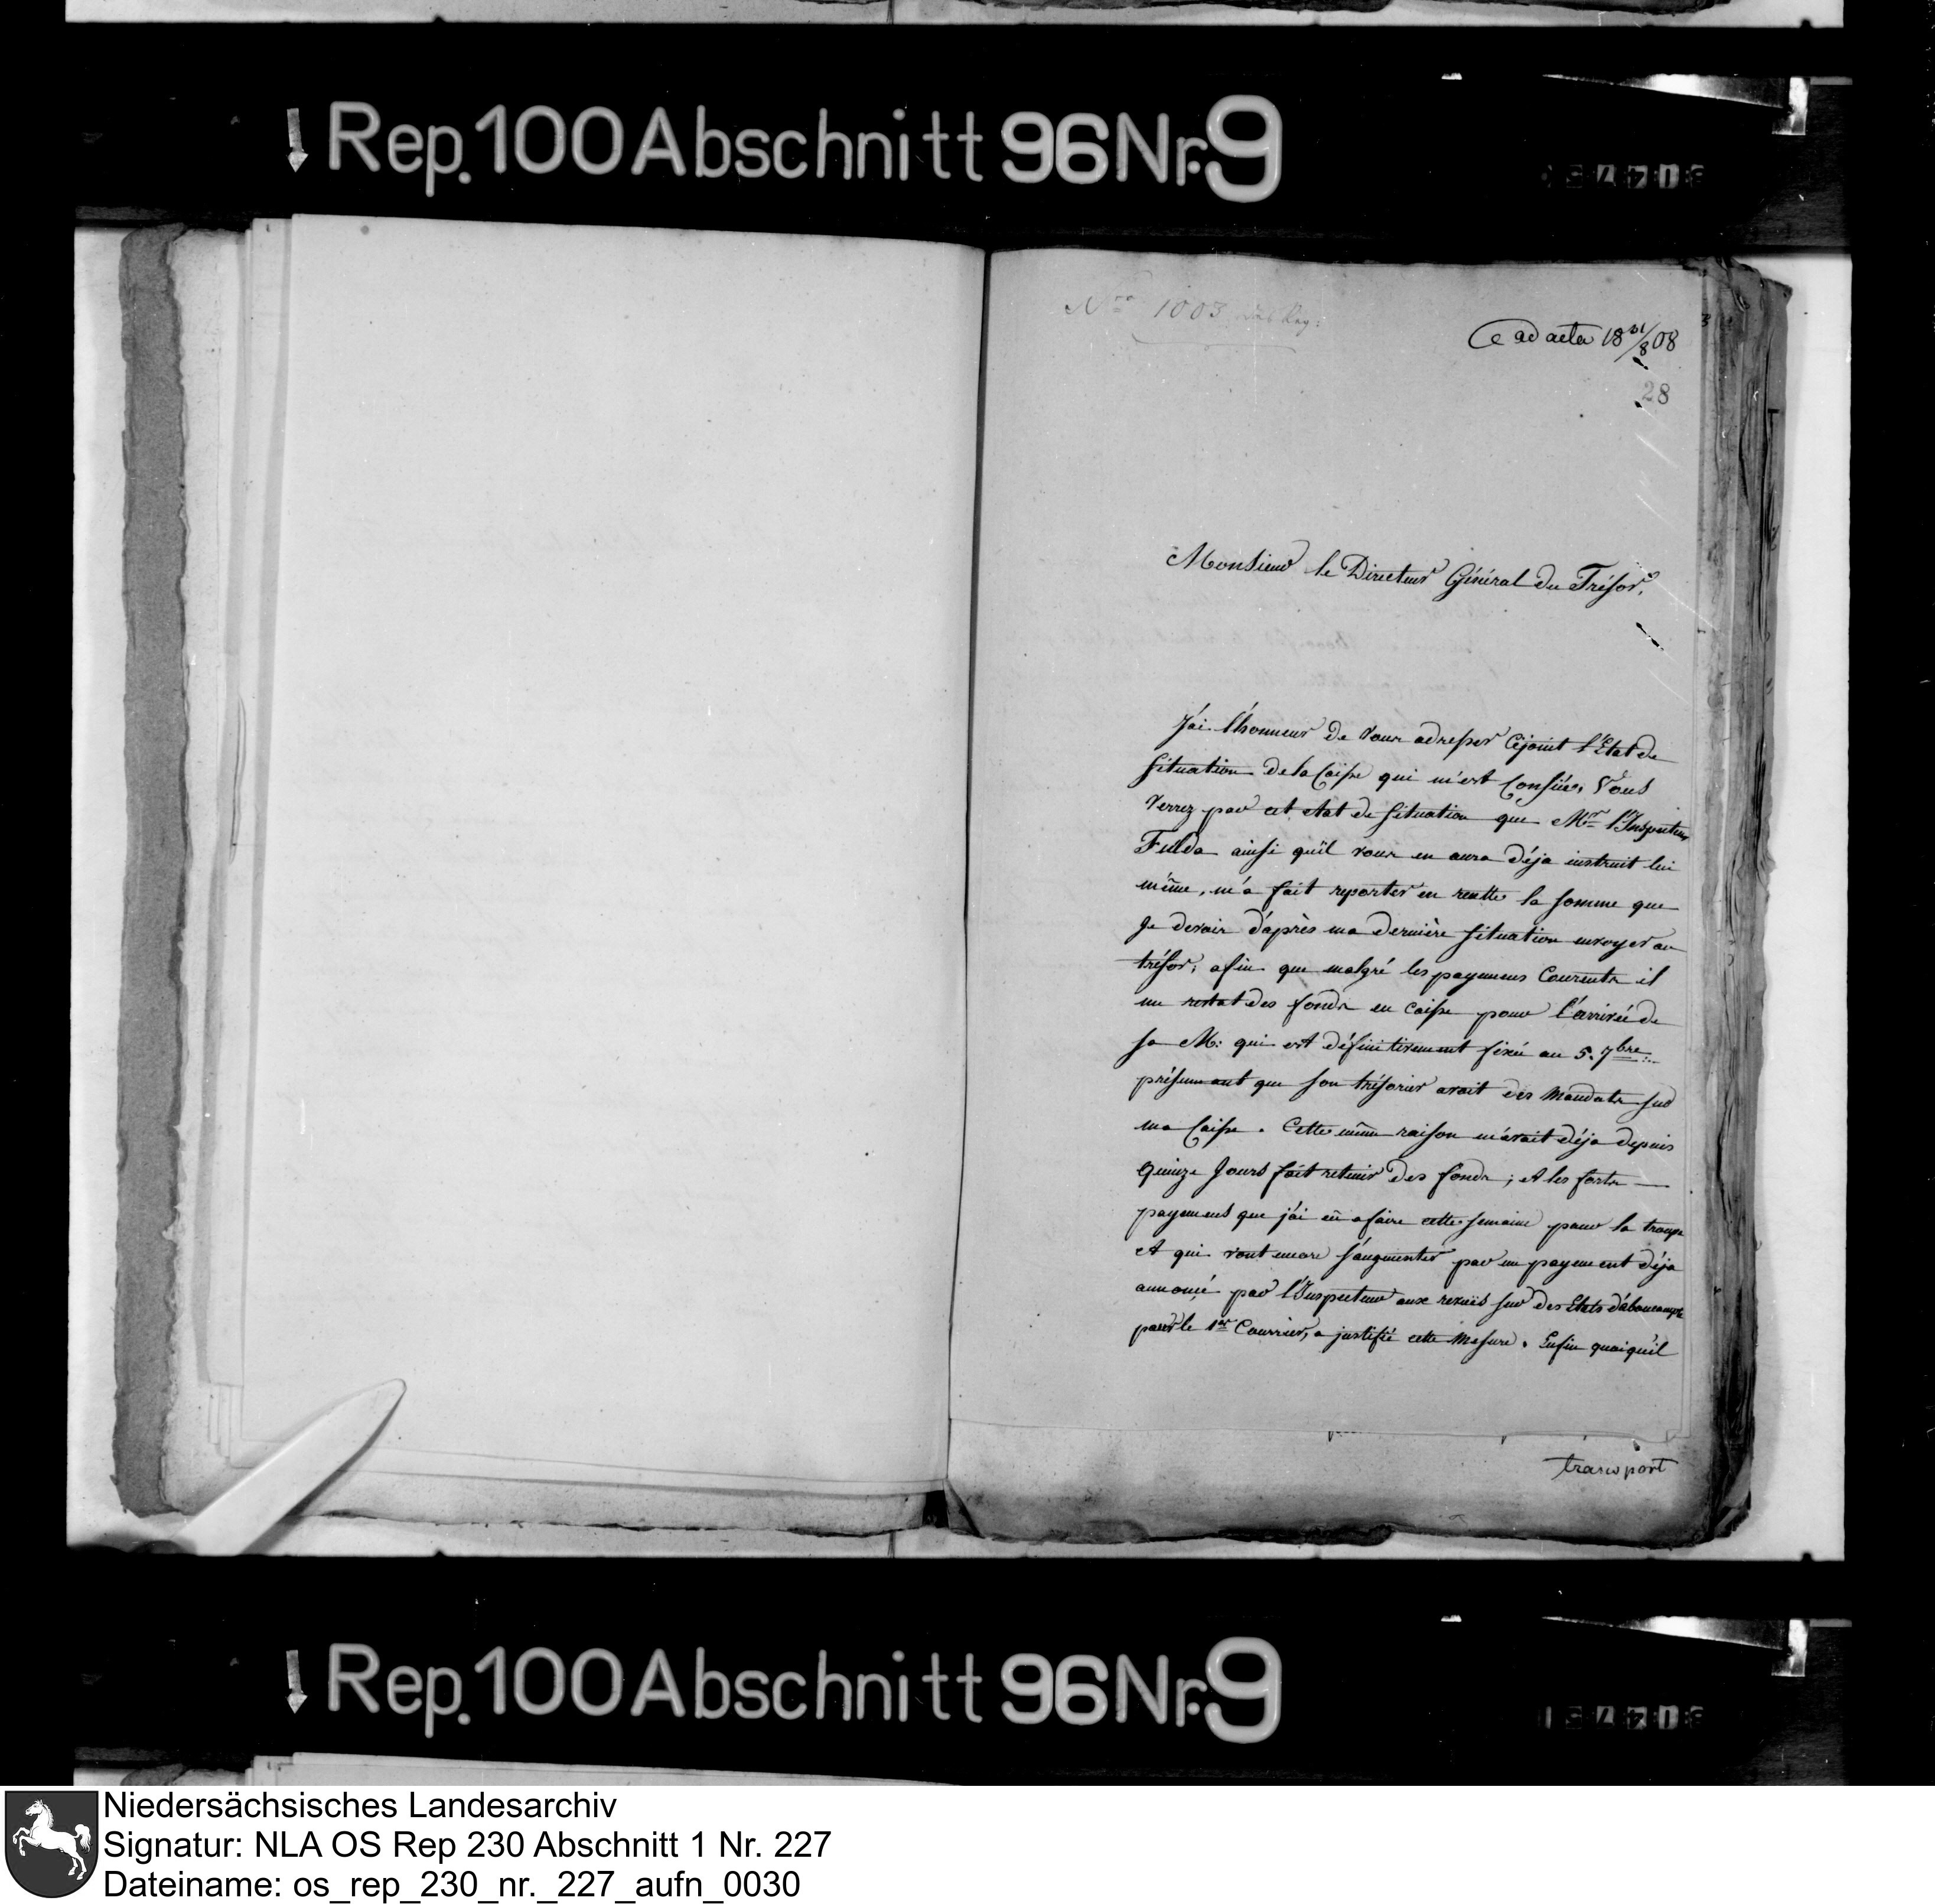 Rep. 100 Abschnitt 96 Nr. 9
Nro 1003
ad acta 18 31/8 08
28
Monsieur le Directeur Général du Trésor,
J'ai l'honneur de vous adresser cijoint l'Etat de
situation de la Caisse qui m'est Confiée, Vous
verrez par cet etat de situation que Mr l'Inspecteur
Fulda ainsi qu'il vous en aura déja instruit lui
même, m'a fait reporter en recette la somme que
Je devais d'après ma dernière situation envoyer au
trésor, afin que malgré les payemens Courents il
me restat des fonds en Caisse pour l'arrivée de
sa M: qui est définitivement fixée au 5. 7bre:
présumant que son trésorier avait des Mandats sur
ma Caisse. Cette même raison m'avait déja depuis
Quinze Jours fait retenir des fonds; et les forts
payemens que j'ai eû a faire cette semaine pour la troupe
et qui vont encore s'augmenter par un payement déja
annoncé par l'Inspecteur aux revuës sur des Etats d'àboncompte
pour le 1er Courrier, a justifié cette Mesure. Enfin quoiqu'il
transport
Rep. 100 Abschnitt 96 Nr. 9
Niedersächsisches Landesarchiv
Signatur: NLA OS Rep 230 Abschnitt 1 Nr. 227
Dateiname: os_rep_230_nr._227_aufn_0030